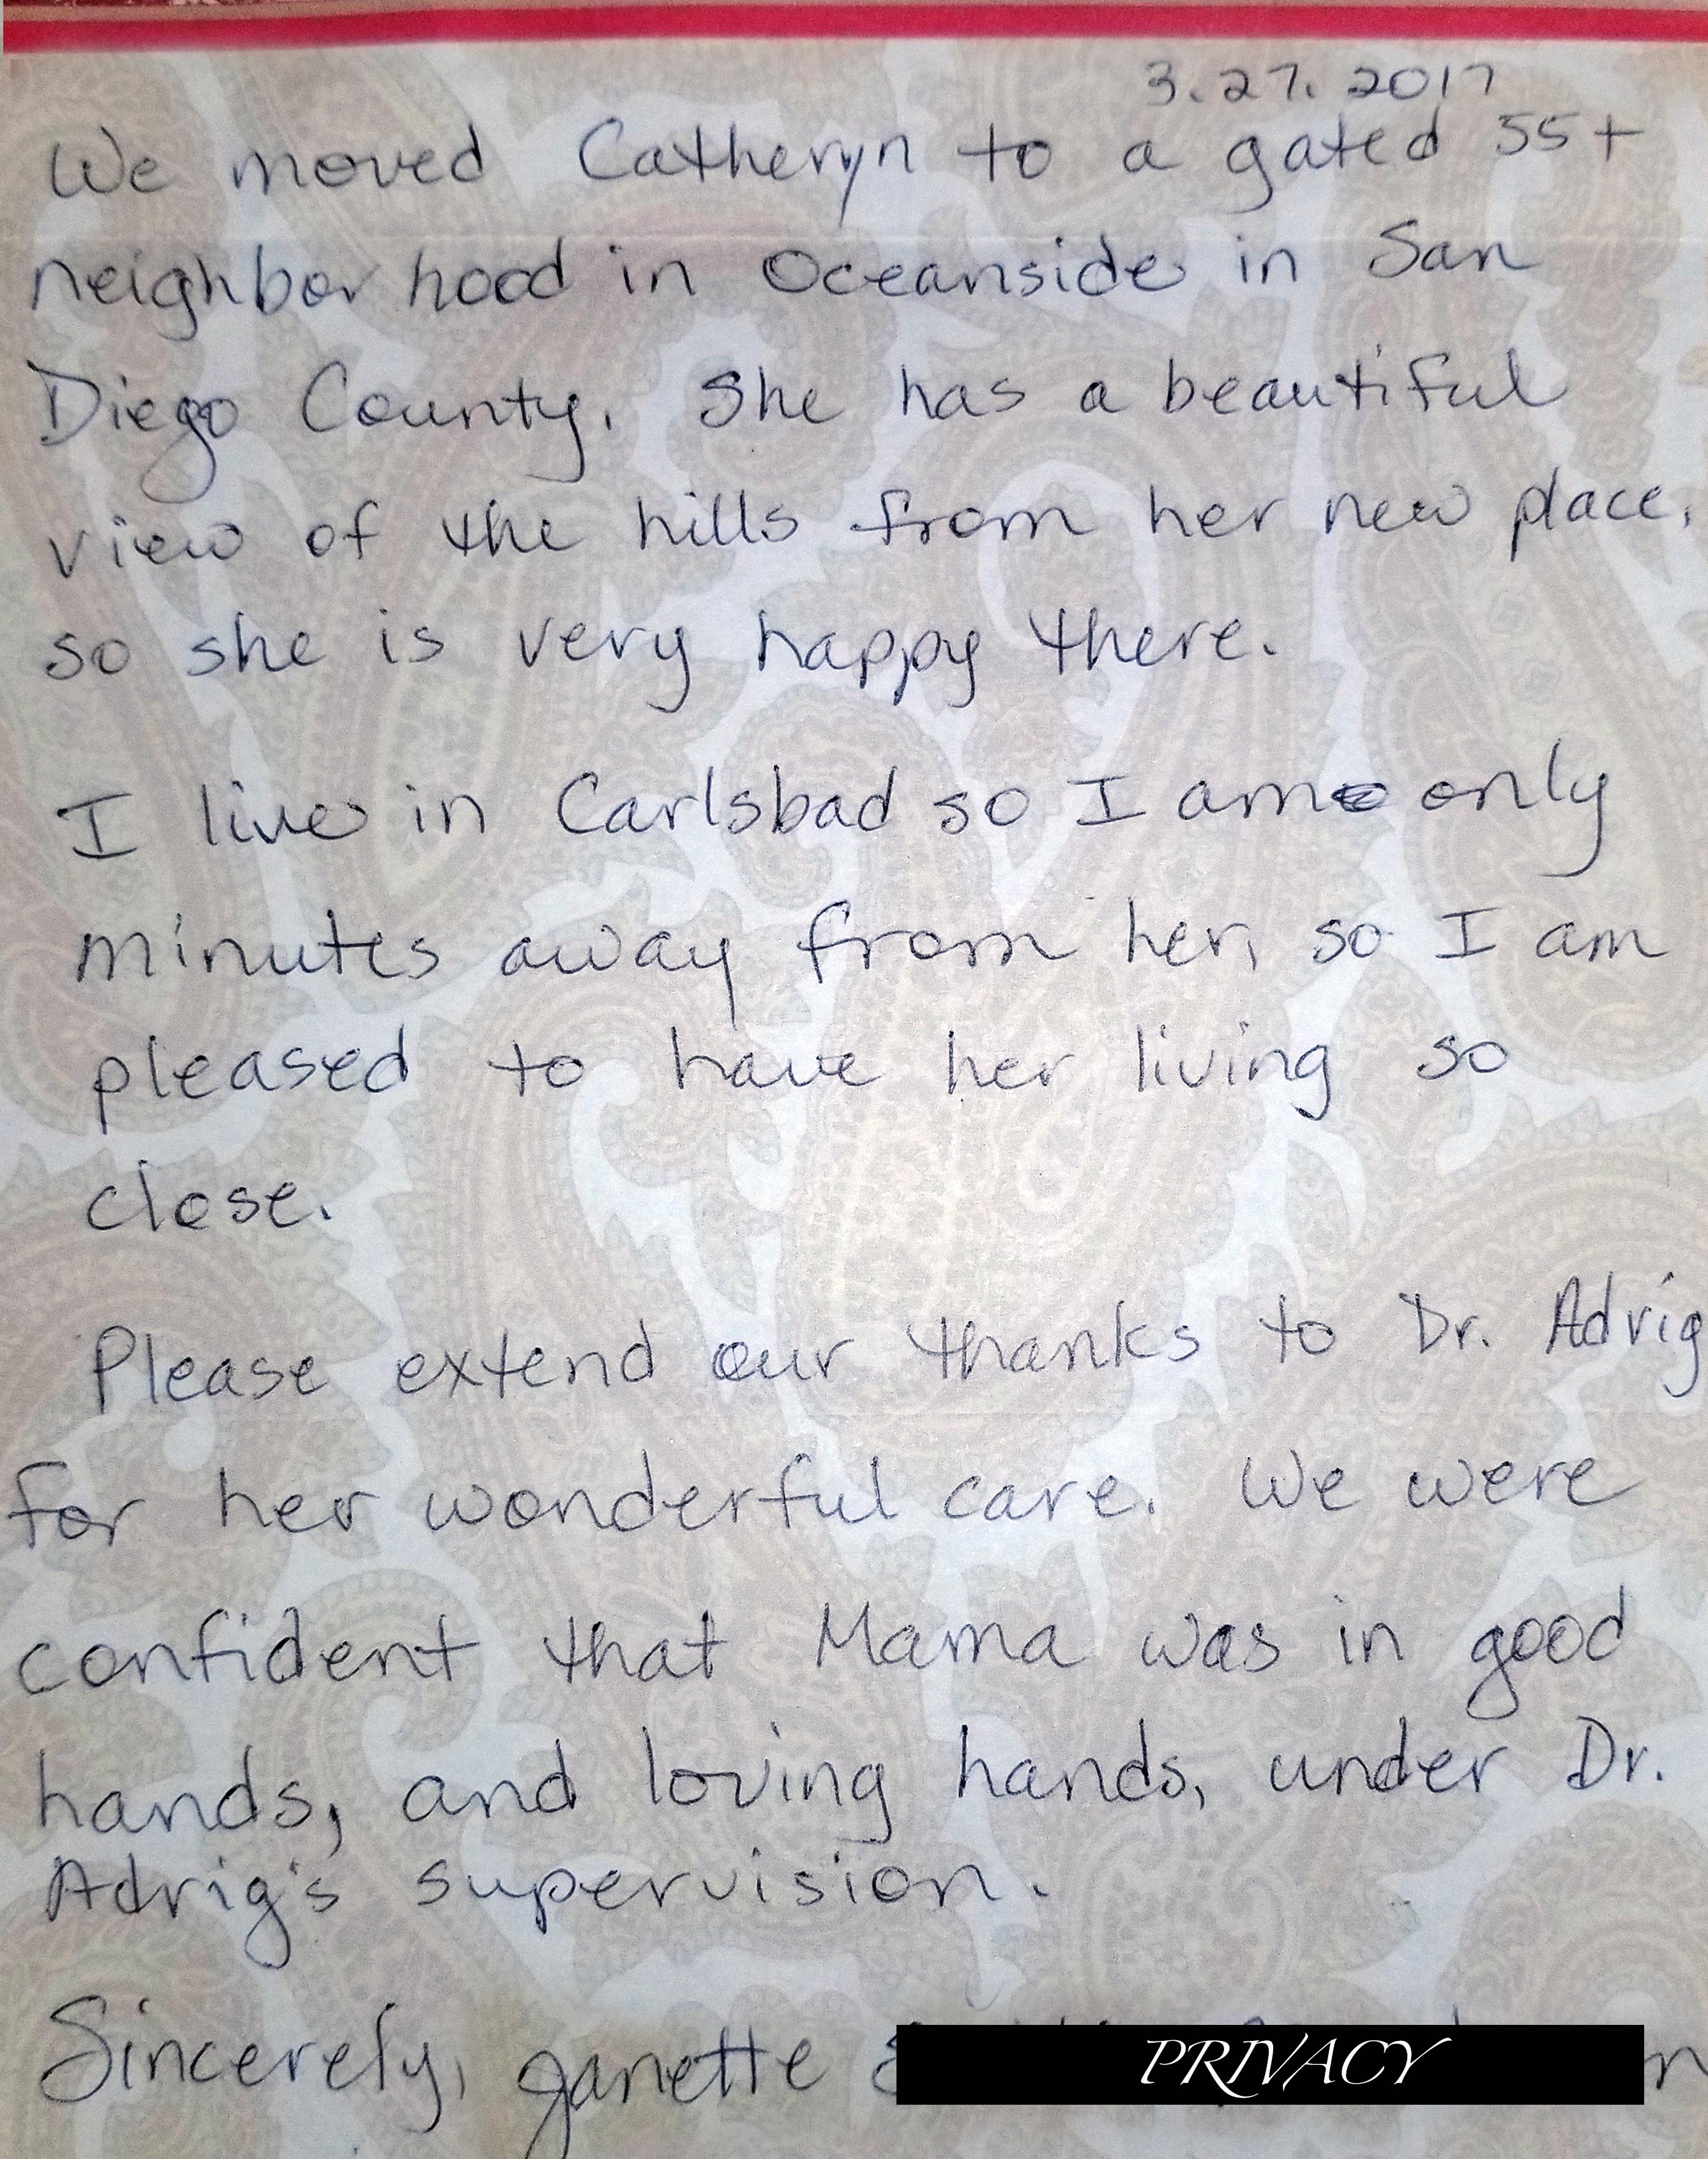 3.27.2017
We moved Catheryn to a gated 55+
neighbor hood in Oceanside in San
Diego County. She has a beautiful
view of the hills from her new place,
so she is very happy there.
I live in Carlsbad so I am only
minutes away from her, so I am
pleased to have her living so
close.
Please extend our thanks to Dr. Adrig
for her wonderful care. We were
confident that Mama was in good
hands, and loving hands, under Dr.
Adrig's supervision.
Sincerely, Janette
PRIVACY